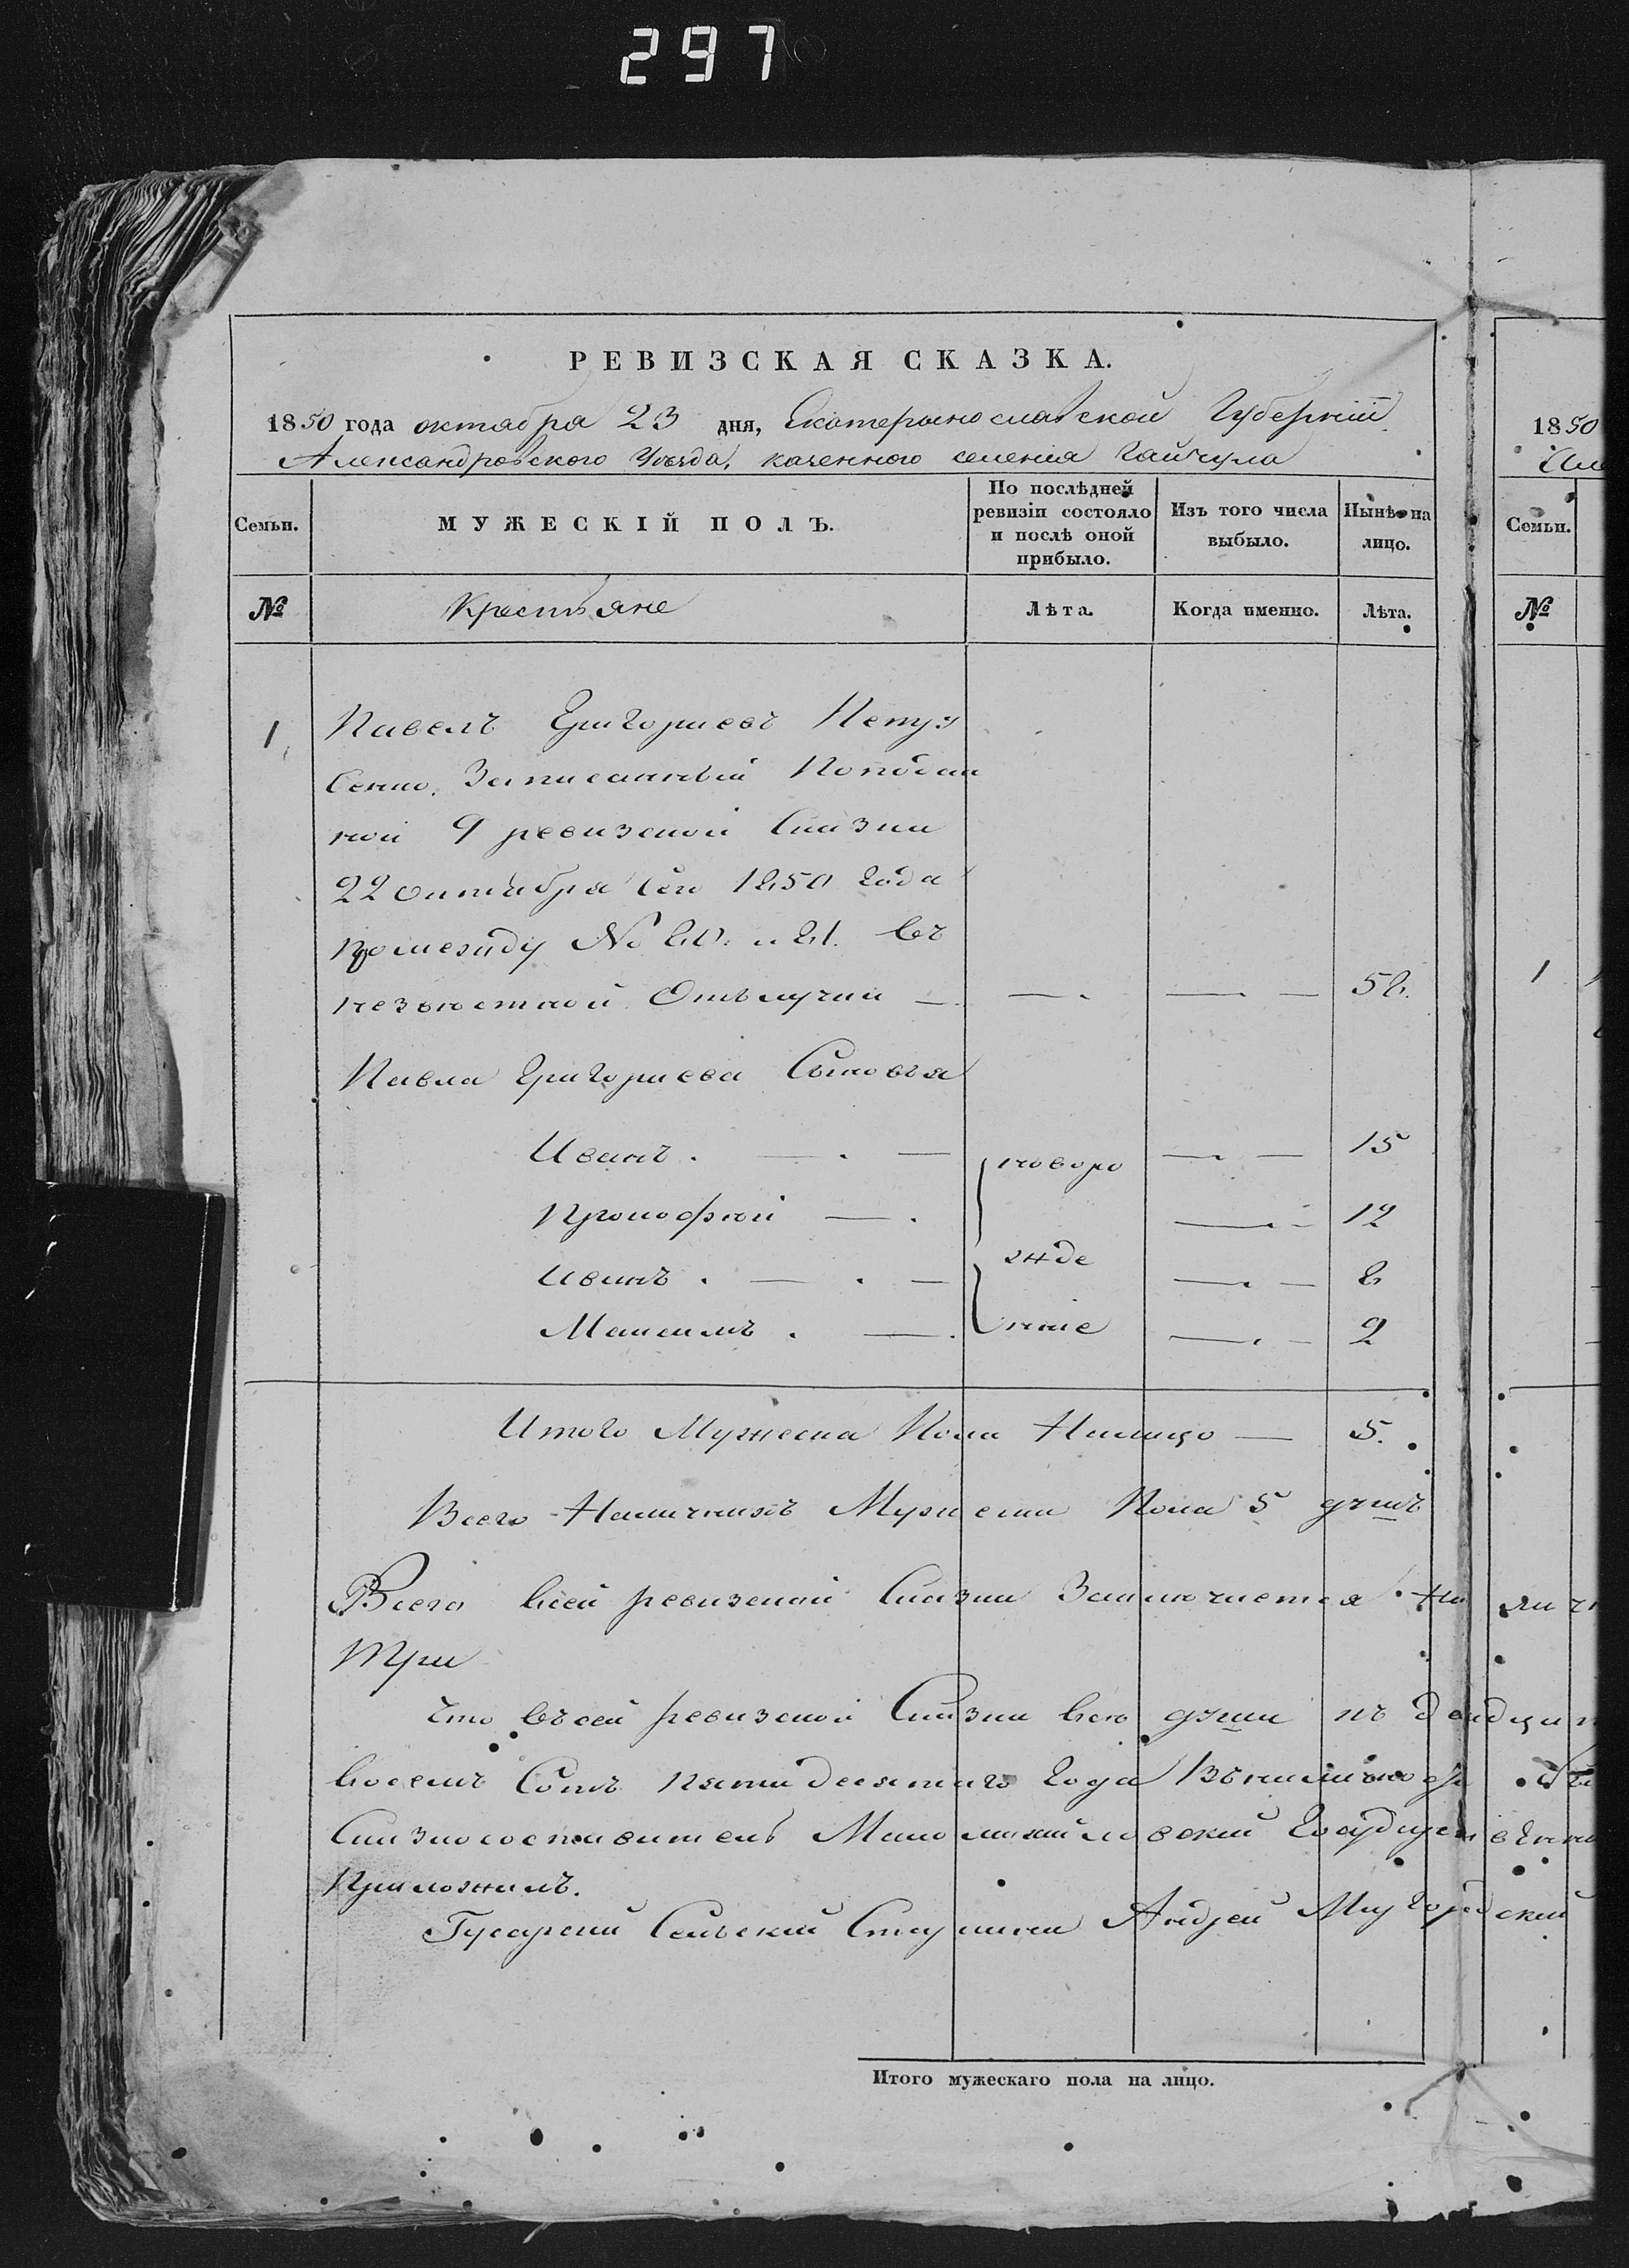 297
РЕВИЗСКАЯ СКАЗКА.
1850 года октабра 23 дня, Екатеринославской Губерніи
Александровского Уѣзда, казенного селенія Гайчула
Семьи.
МУЖЕСКІЙ ПОЛЪ.
По послѣдней ревизіи состояло и послѣ оной прибыло.
Изъ того числа выбыло.
Нынѣ на лицо.
№
Крестьяне
Лѣта.
Когда именно.
Лѣта.
1 Павелъ Григориевъ Непуз
сенко, Записанный Поподан
ной 9 ревизской Сказки
22 октабря сего 1850 года
промежиду № 20: и 21. въ
незвестной Отълучки — — — 58.
Павла Григориева Сыновъя
Иванъ. — 15
новоро
Прокофий — 12
Иванъ. — 8
жде
Максимъ. — 2
ніе
Итого Мужеска Пола Налицо — 5.
Всего Наличнихъ Мужеска Пола 5 душъ
Всего Всей ревизской Сказки Заключается На личн
Три
Что въсей ревизской Сказки всего души
восемъ Сотъ пятидесятаго Года
Сказкосоставителъ Мало Михайловский Государственн
Приложилъ.
Гусарский Селъский Старшина Андрей Миргородский
Итого мужескаго пола на лицо.
1850
Але
Семьи.
№
1